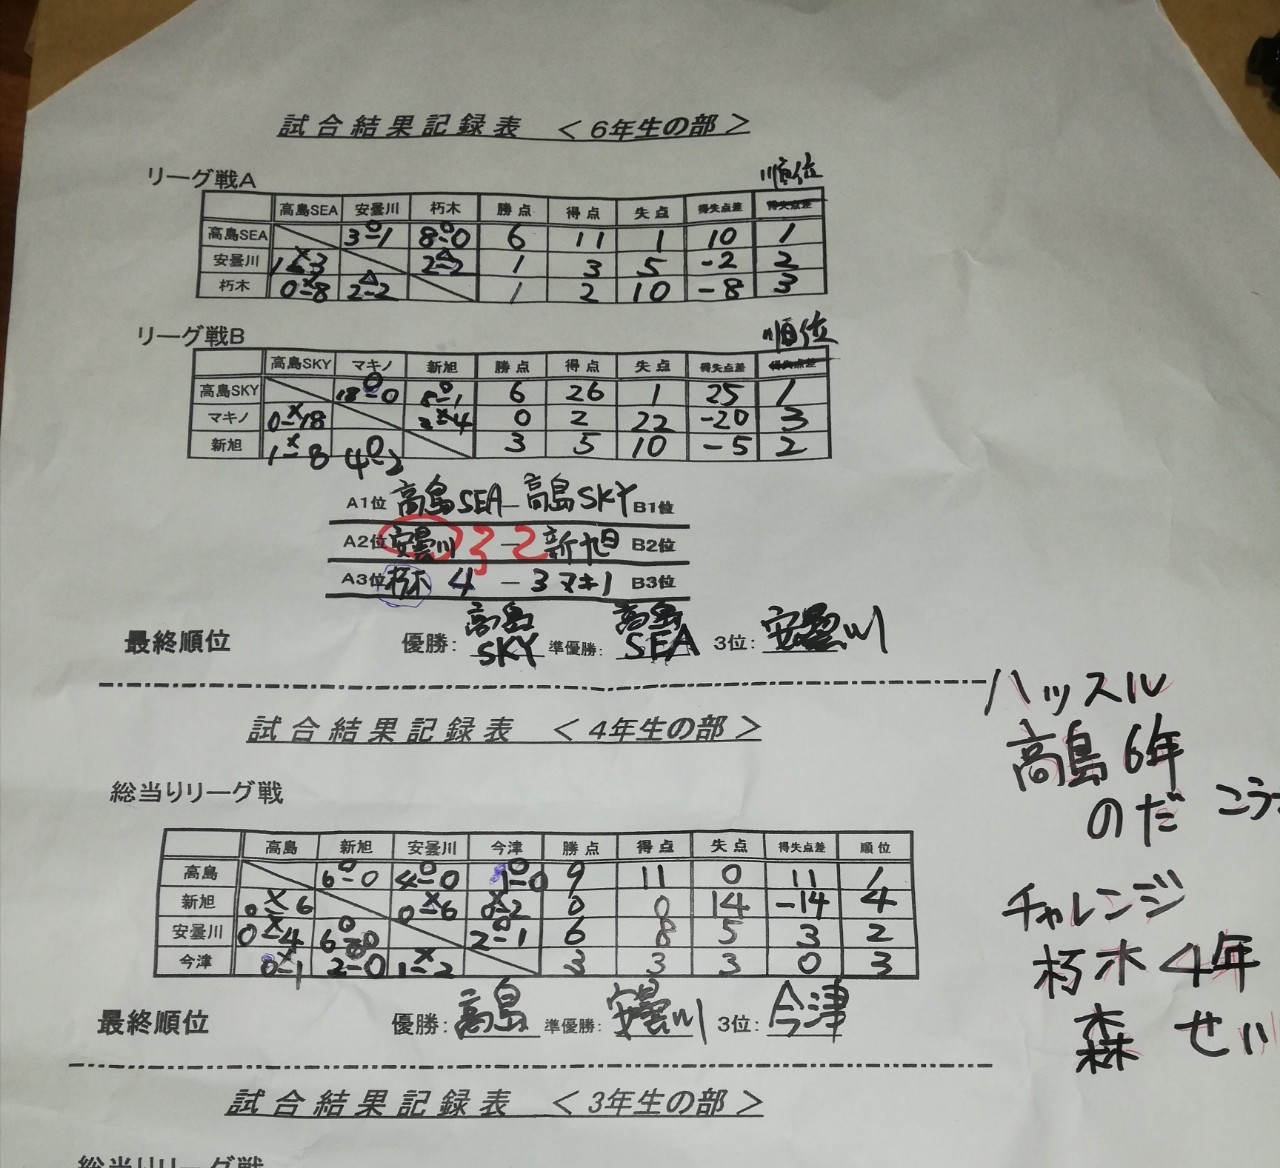 試合結果記録表 ＜6年生の部＞
リーグ戦A 順位
高島SEA 安曇川 朽木 勝点 得点 失点 得失点差 得失点差
高島SEA 3○1 8○0 6 11 1 10 1
安曇川 1×3 2△2 1 3 5 -2 2
朽木 0×8 2△2 1 2 10 -8 3
リーグ戦B 順位
高島SKY マキノ 新旭 勝点 得点 失点 得失点差 得失点差
高島SKY 18○0 8○1 6 26 1 25 1
マキノ 0×18 2×4 0 2 22 -20 3
新旭 1×8 4○2 3 5 10 -5 2
A1位 高島SEA – 高島SKY B1位
A2位 安曇川 3 – 2 新旭 B2位
A3位 朽木 4 – 3 マキノ B3位
最終順位 優勝: 高島SKY 準優勝: 高島SEA 3位: 安曇川
試合結果記録表 ＜4年生の部＞
総当りリーグ戦
高島 新旭 安曇川 今津 勝点 得点 失点 得失点差 順位
高島 6○0 4○0 1○0 9 11 0 11 1
新旭 0×6 0×6 0×2 0 0 14 -14 4
安曇川 0×4 6○0 2○1 6 8 5 3 2
今津 0×1 2–0 1×2 3 3 3 0 3
最終順位 優勝: 高島 準優勝: 安曇川 3位: 今津
ハッスル
高島6年
のだ こう
チャレンジ
朽木4年
森 せい
試合結果記録表 ＜3年生の部＞
総当りリーグ戦